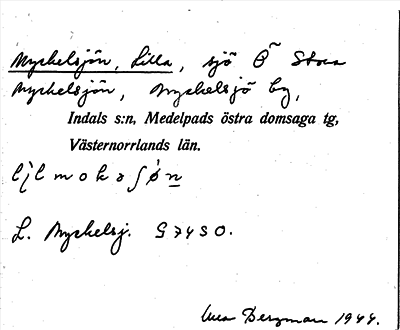 Myckelsjön, Lilla, sjö Ö Stora
Myckelsjön, Myckelsjö by,
Indals s:n, Medelpads östra domsaga tg,
Västernorrlands län.
L. Myckelsj. G 7450.
Bergman 1944.